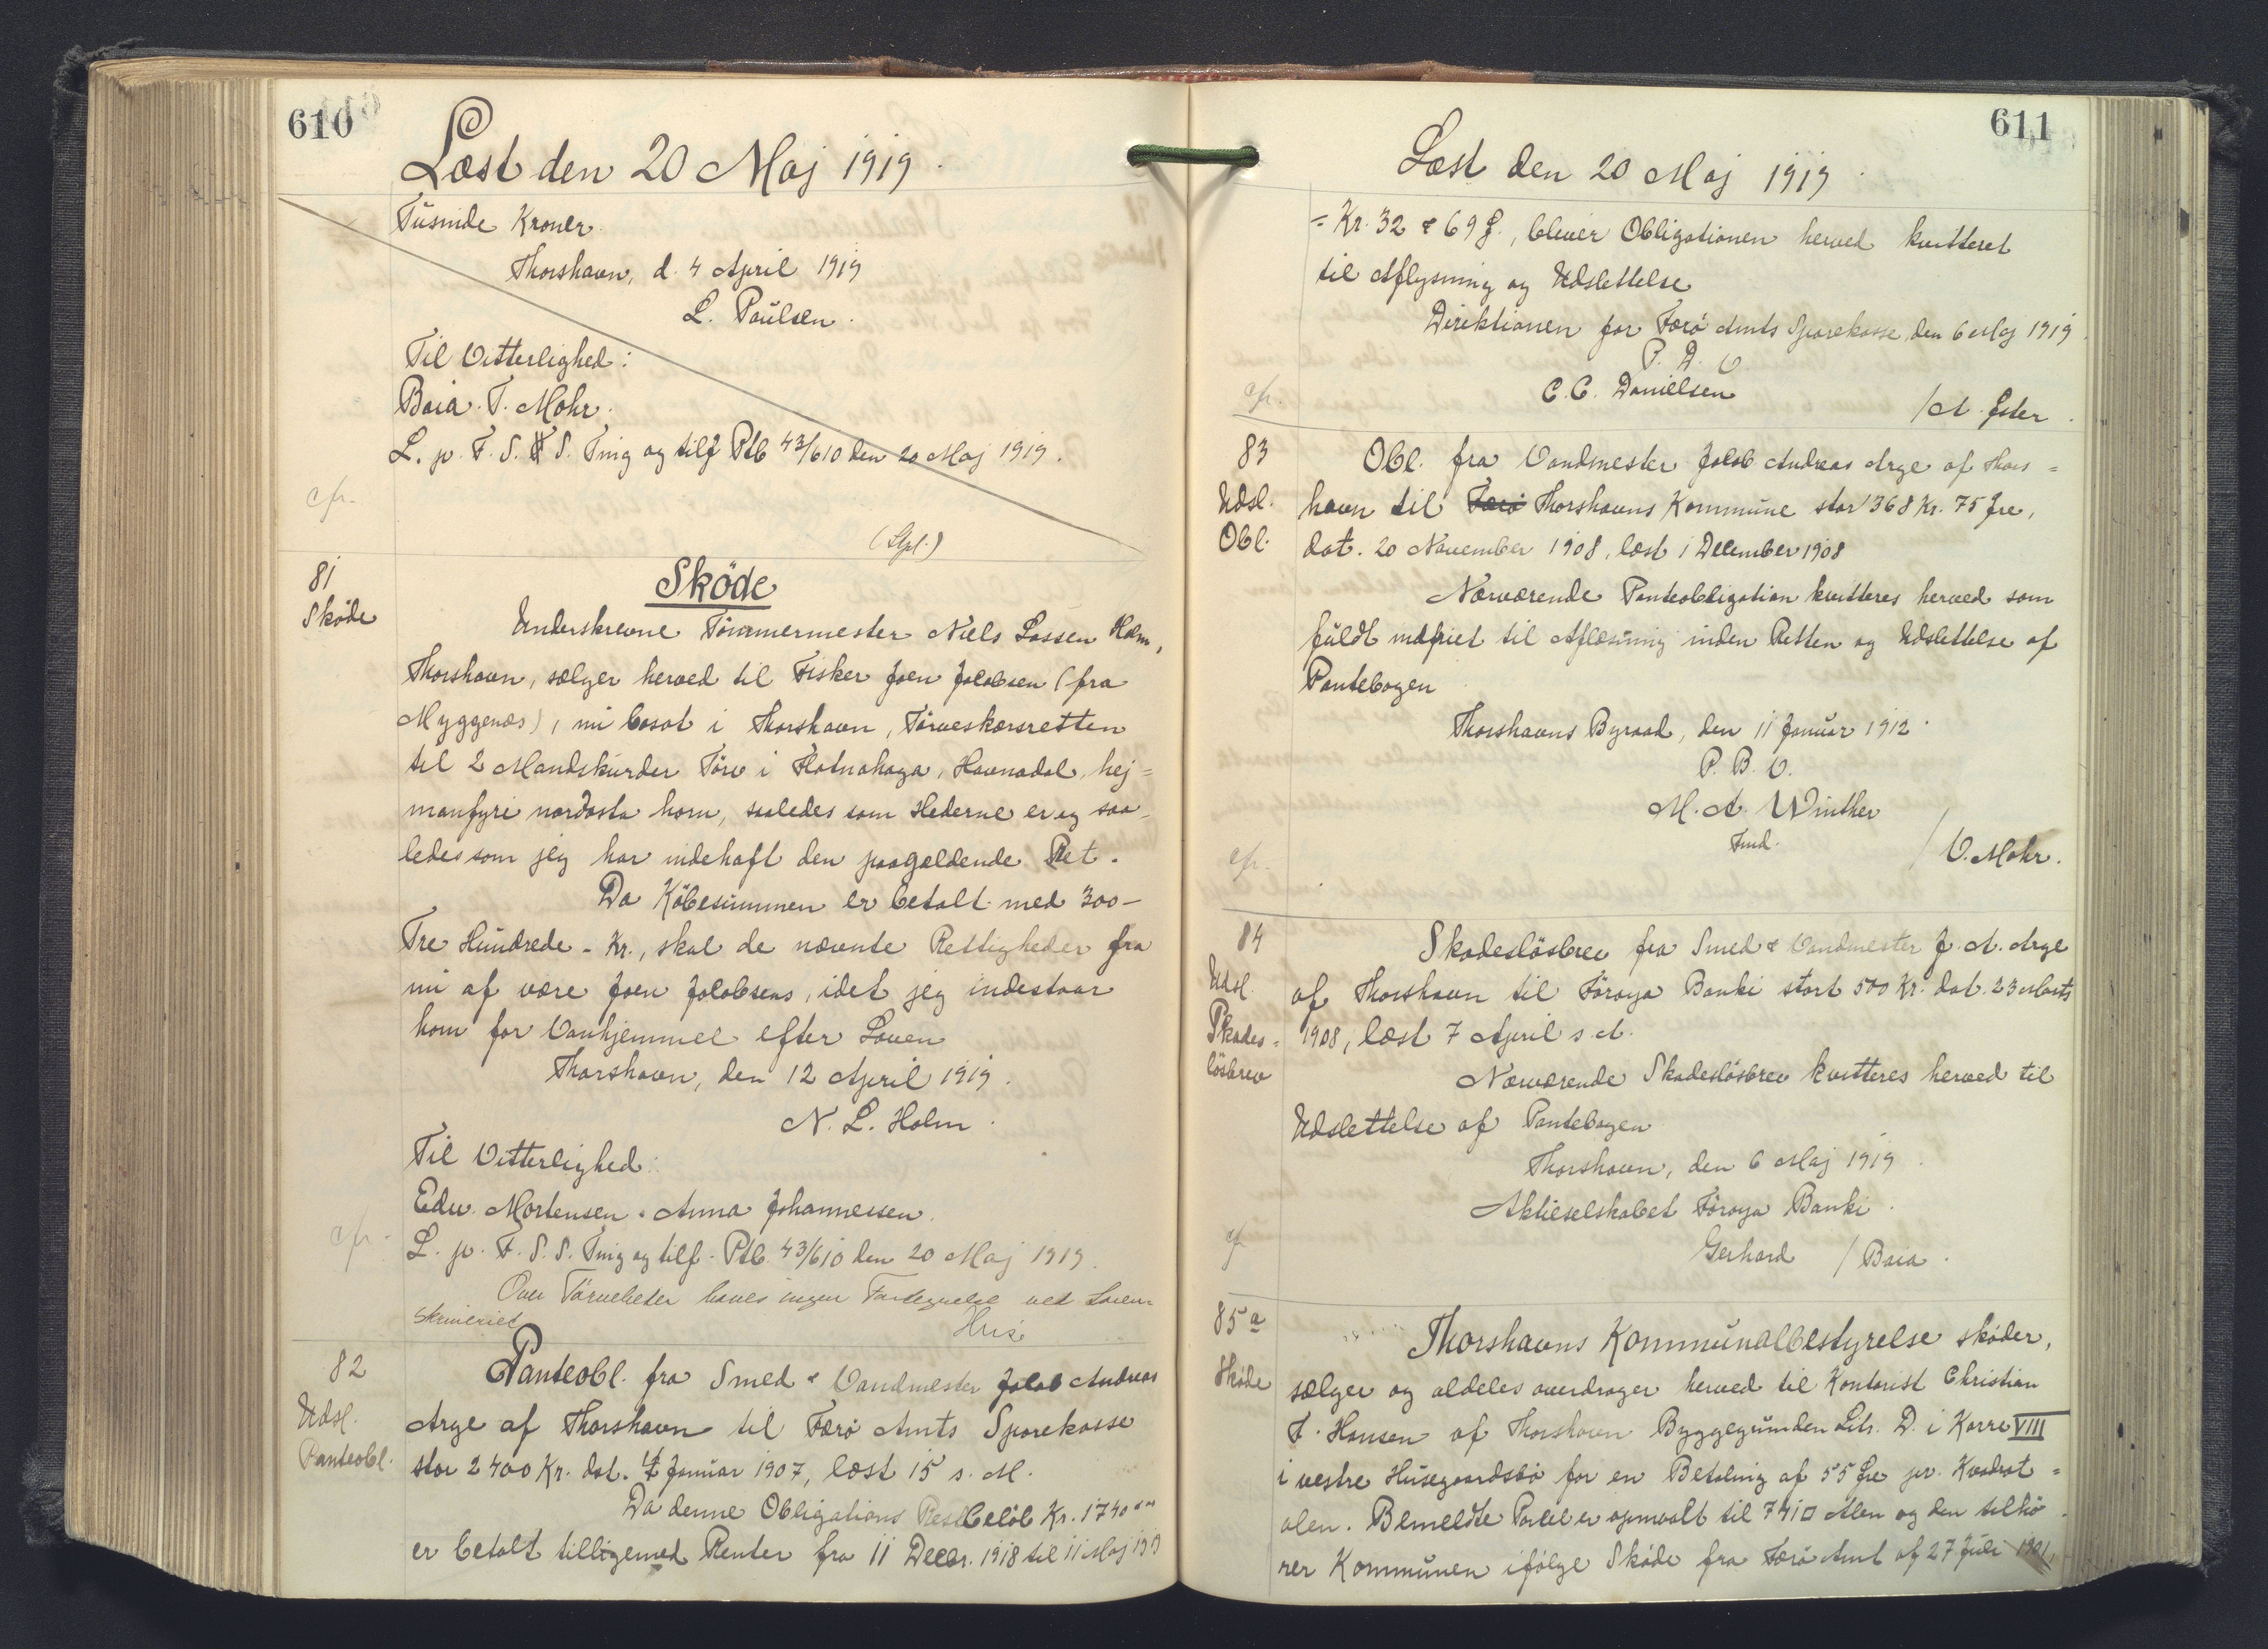 610
Læst den 20 Maj 1919.
Tusinde Kroner.
Thorshavn, d. 4 April 1919
L. Poulsen.
Til Vitterlighed:
Baia. T. Mohr.
L. p. F. S. S. Ting og tilf Ptb 43/610 den 20 Maj 1919.
cfr.
(Stpl.)
81
Sköde
Sköde
Underskrevne Tömmermester Niels Lassen Holm,
Thorshavn, sælger herved til Fisker Joen Jakobsen (fra
Myggenæs), nu bosat i Thorshavn, Törveskærsretten
til 2 Mandskurder Törv i Flatnahaga, Havnadal, hej=
manfyri nordasta horn, saaledes som Hederne er og saa-
ledes som jeg har indehaft den paagældende Ret.
Da Köbesummen er betalt med 300-
Tre Hundrede - Kr., skal de nævnte Rettigheder fra
nu af være Joen Jakobsens, idet jeg indestaar
ham for Vanhjemmel efter Loven
Thorshavn, den 12 April 1919.
N. L. Holm.
Til Vitterlighed:
Edw. Mortensen. Anna Johannessen.
cfr.
L. p. F. S. S. Ting og tilf. Ptb. 43/610 den 20 Maj 1919.
Over Törveheder haves ingen Fortegnelse ved Soren-
skriveriet
82
Udsl.
Panteobl.
Panteobl. fra Smed & Vandmester Jakob Andreas
Arge af Thorshavn til Færö Amts Sparekasse
stor 2400 Kr. dat. Januar 1907, læst 15 s. M.
Da denne Obligations Restbelöb Kr. 1740
er betalt tilligemed Renter fra 11 Decbr. 1918 til 11 Maj 1919
611
Læst den 20 Maj 1919.
= Kr. 32 & 69 Ø., bliver Obligationen herved kvitteret
til Aflysning og Udslettelse
Direktionen for Færö Amts Sparekasse, den 6 Maj 1919.
P. D. V.
C. C. Danielsen
/ A.
cfr.
83
Udsl.
Obl.
Obl. fra Vandmester Jakob Andreas Arge af Thors=
havn til Færö Thorshavns Kommune stor 1368 Kr. 75 Øre,
dat. 20 November 1908, læst 1 December 1908
Nærværende Panteobligation kvitteres herved som
fuldt indfriet til Aflæsning inden Retten og Udslettelse af
Pantebogen
Thorshavns Byraad, den 11 Januar 1912.
P. B. V.
M. A. Winther
Fmd.
/ V. Mohr.
cfr.
84
Udsl.
Skades=
lösbrev
Skadeslösbrev fra Smed & Vandmester J. A. Arge
af Thorshavn til Föroya Banki stort 500 Kr. dat. 23 Marts
1908, læst 7 April s. A.
Nærværende Skadeslösbrev kvitteres herved til
Udslettelse af Pantebogen
Thorshavn, den 6 Maj 1919.
Aktieselskabet Föroya Banki.
Gerhard / Baia.
cfr
85a
Sköde
Thorshavns Kommunalbestyrelse sköder,
sælger og aldeles overdrager herved til Kontorist Christian
J. Hansen af Thorshavn Byggegrunden Litr. D. i Karre VIII
i vestre Husegaardsbö for en Betaling af 55 Øre pr. Kvadrat=
alen. Bemeldte Parcel er opmaalt til 741 □ Alen og den tilhö-
rer Kommunen ifölge Sköde fra Færö Amt af 27 Juli 1901,